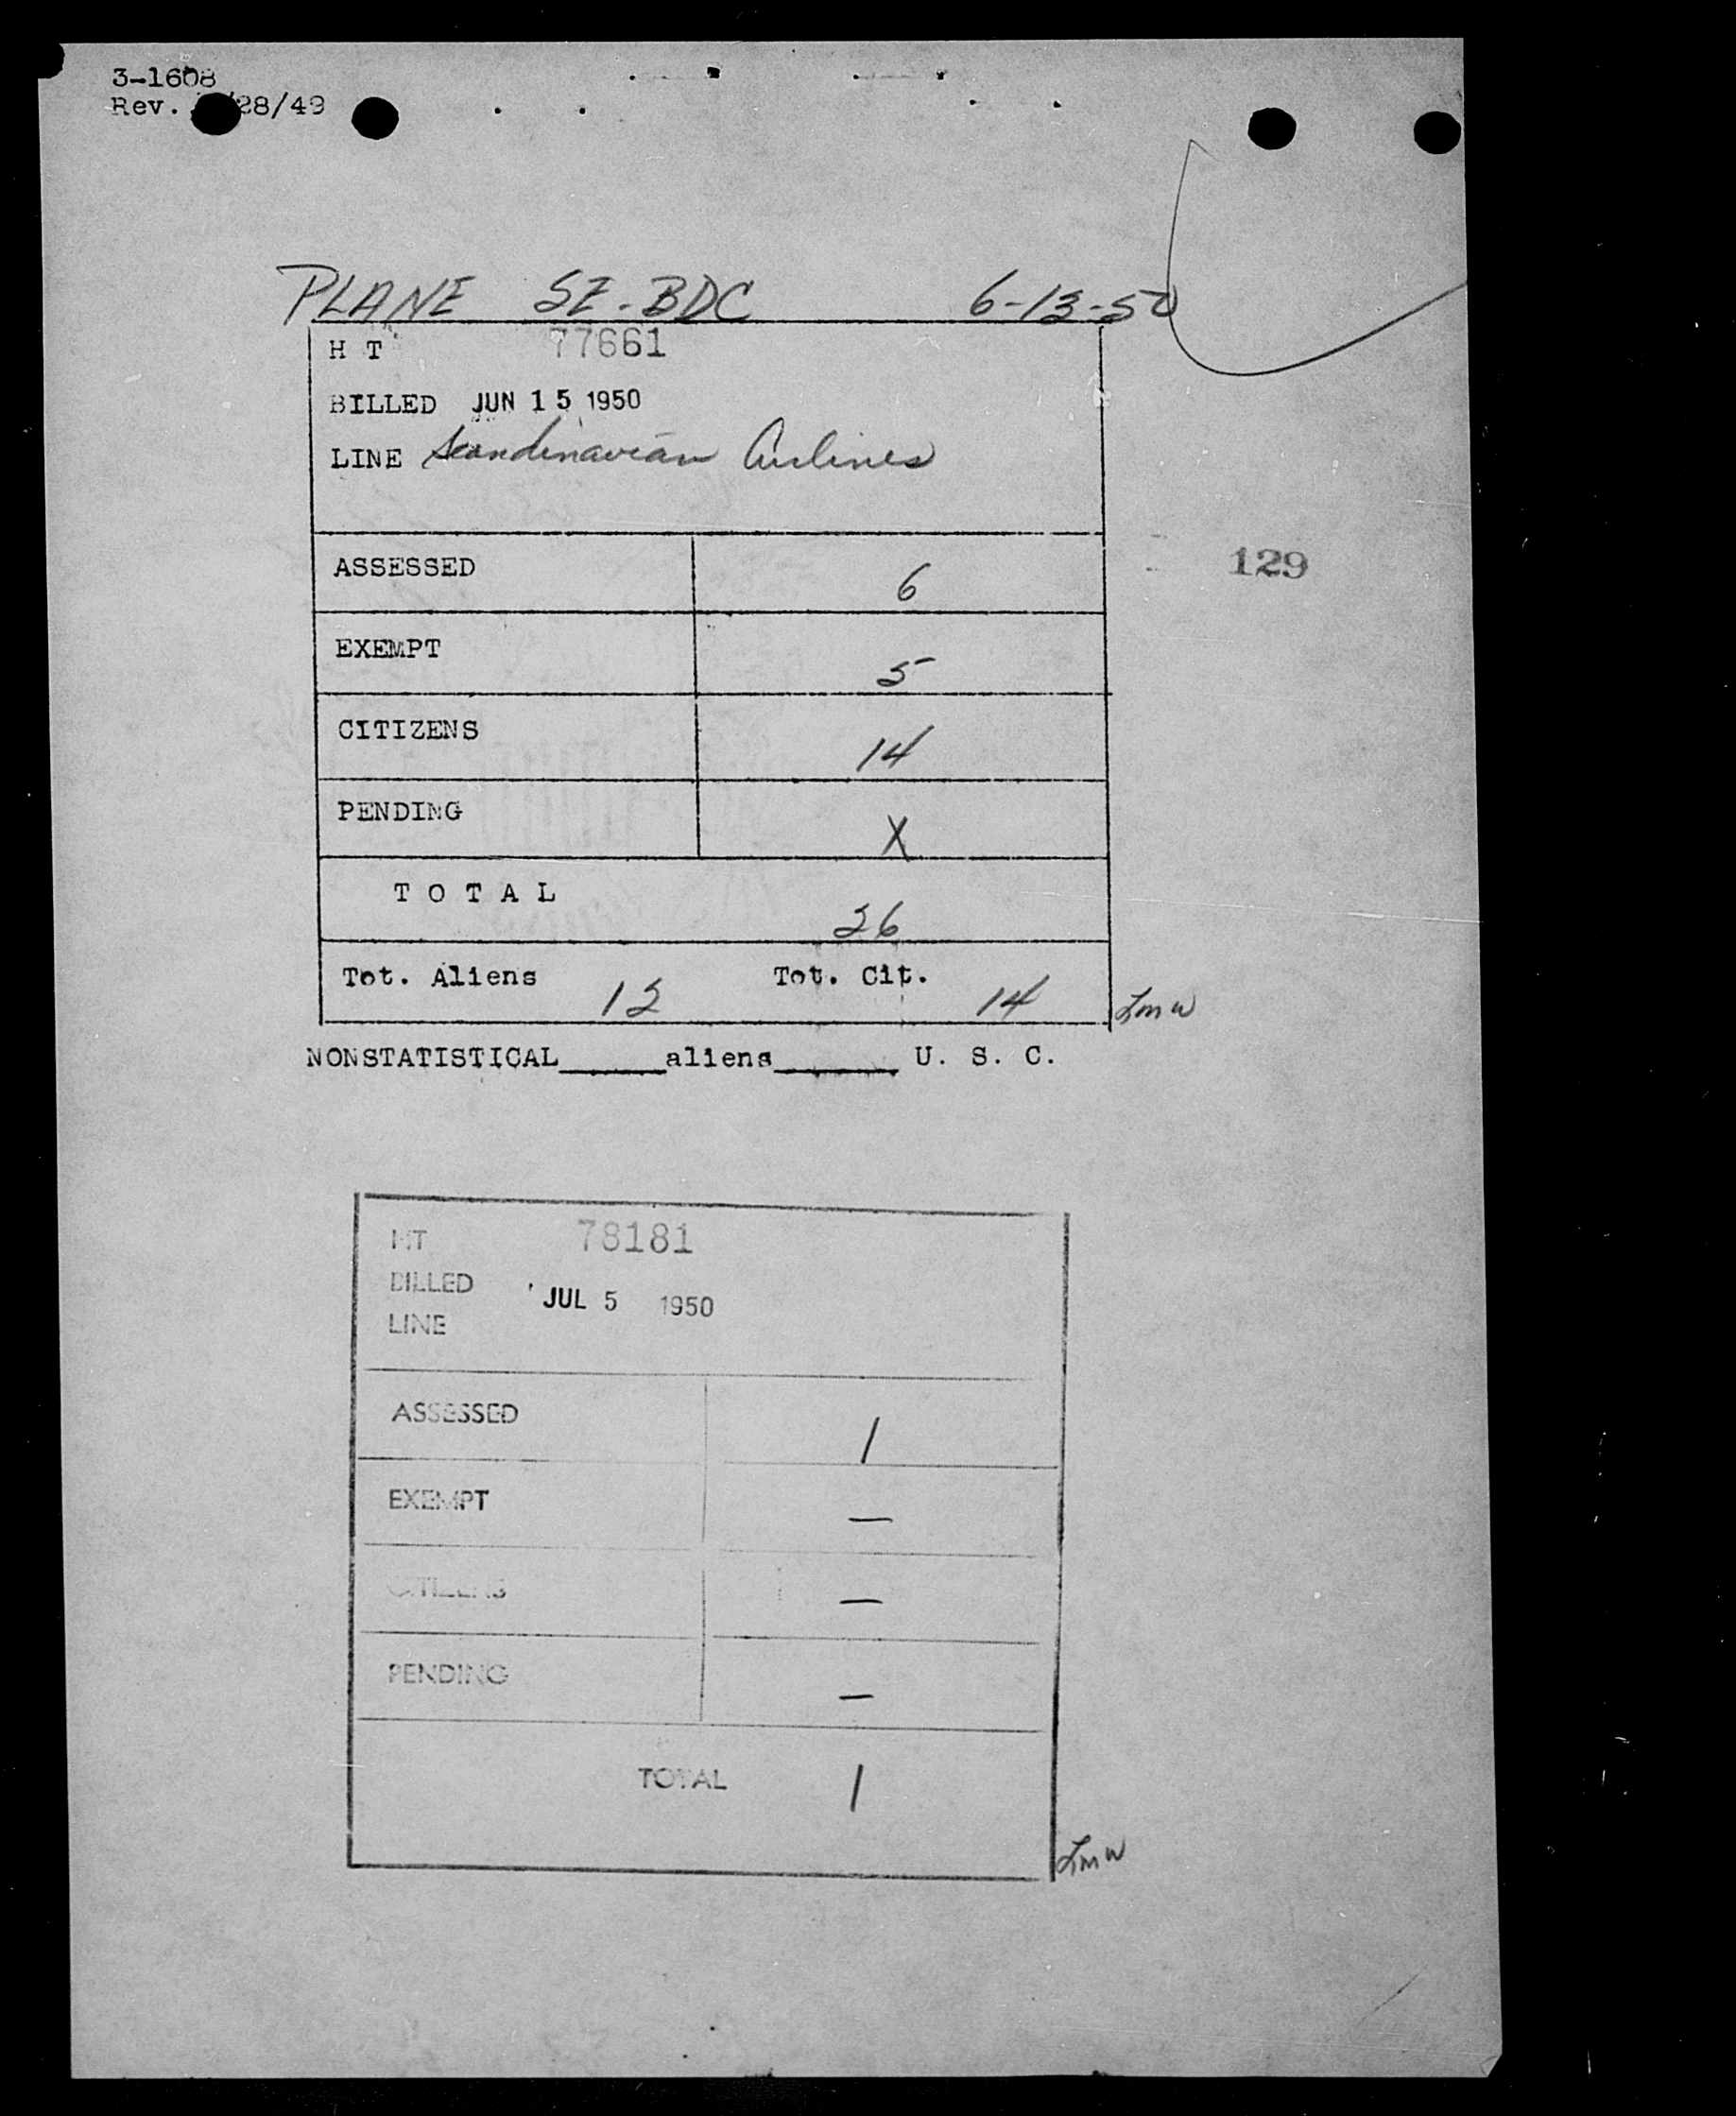 3-1608
Rev. /28/49
PLANE SE-BDC 6-13-50
H T 77661
BILLED JUN 15 1950
LINE Scandinavian Airlines
129
ASSESSED 6
EXEMPT 5
CITIZENS 14
PENDING X
T O T A L 26
Tot. Aliens 12 Tot. Cit. 14 Lmw
NONSTATISTICAL______aliens_______ U. S. C.
HT 78181
BILLED JUL 5 1950
LINE
ASSESSED 1
EXEMPT —
CITIZENS —
PENDING —
TOTAL 1
Lmw